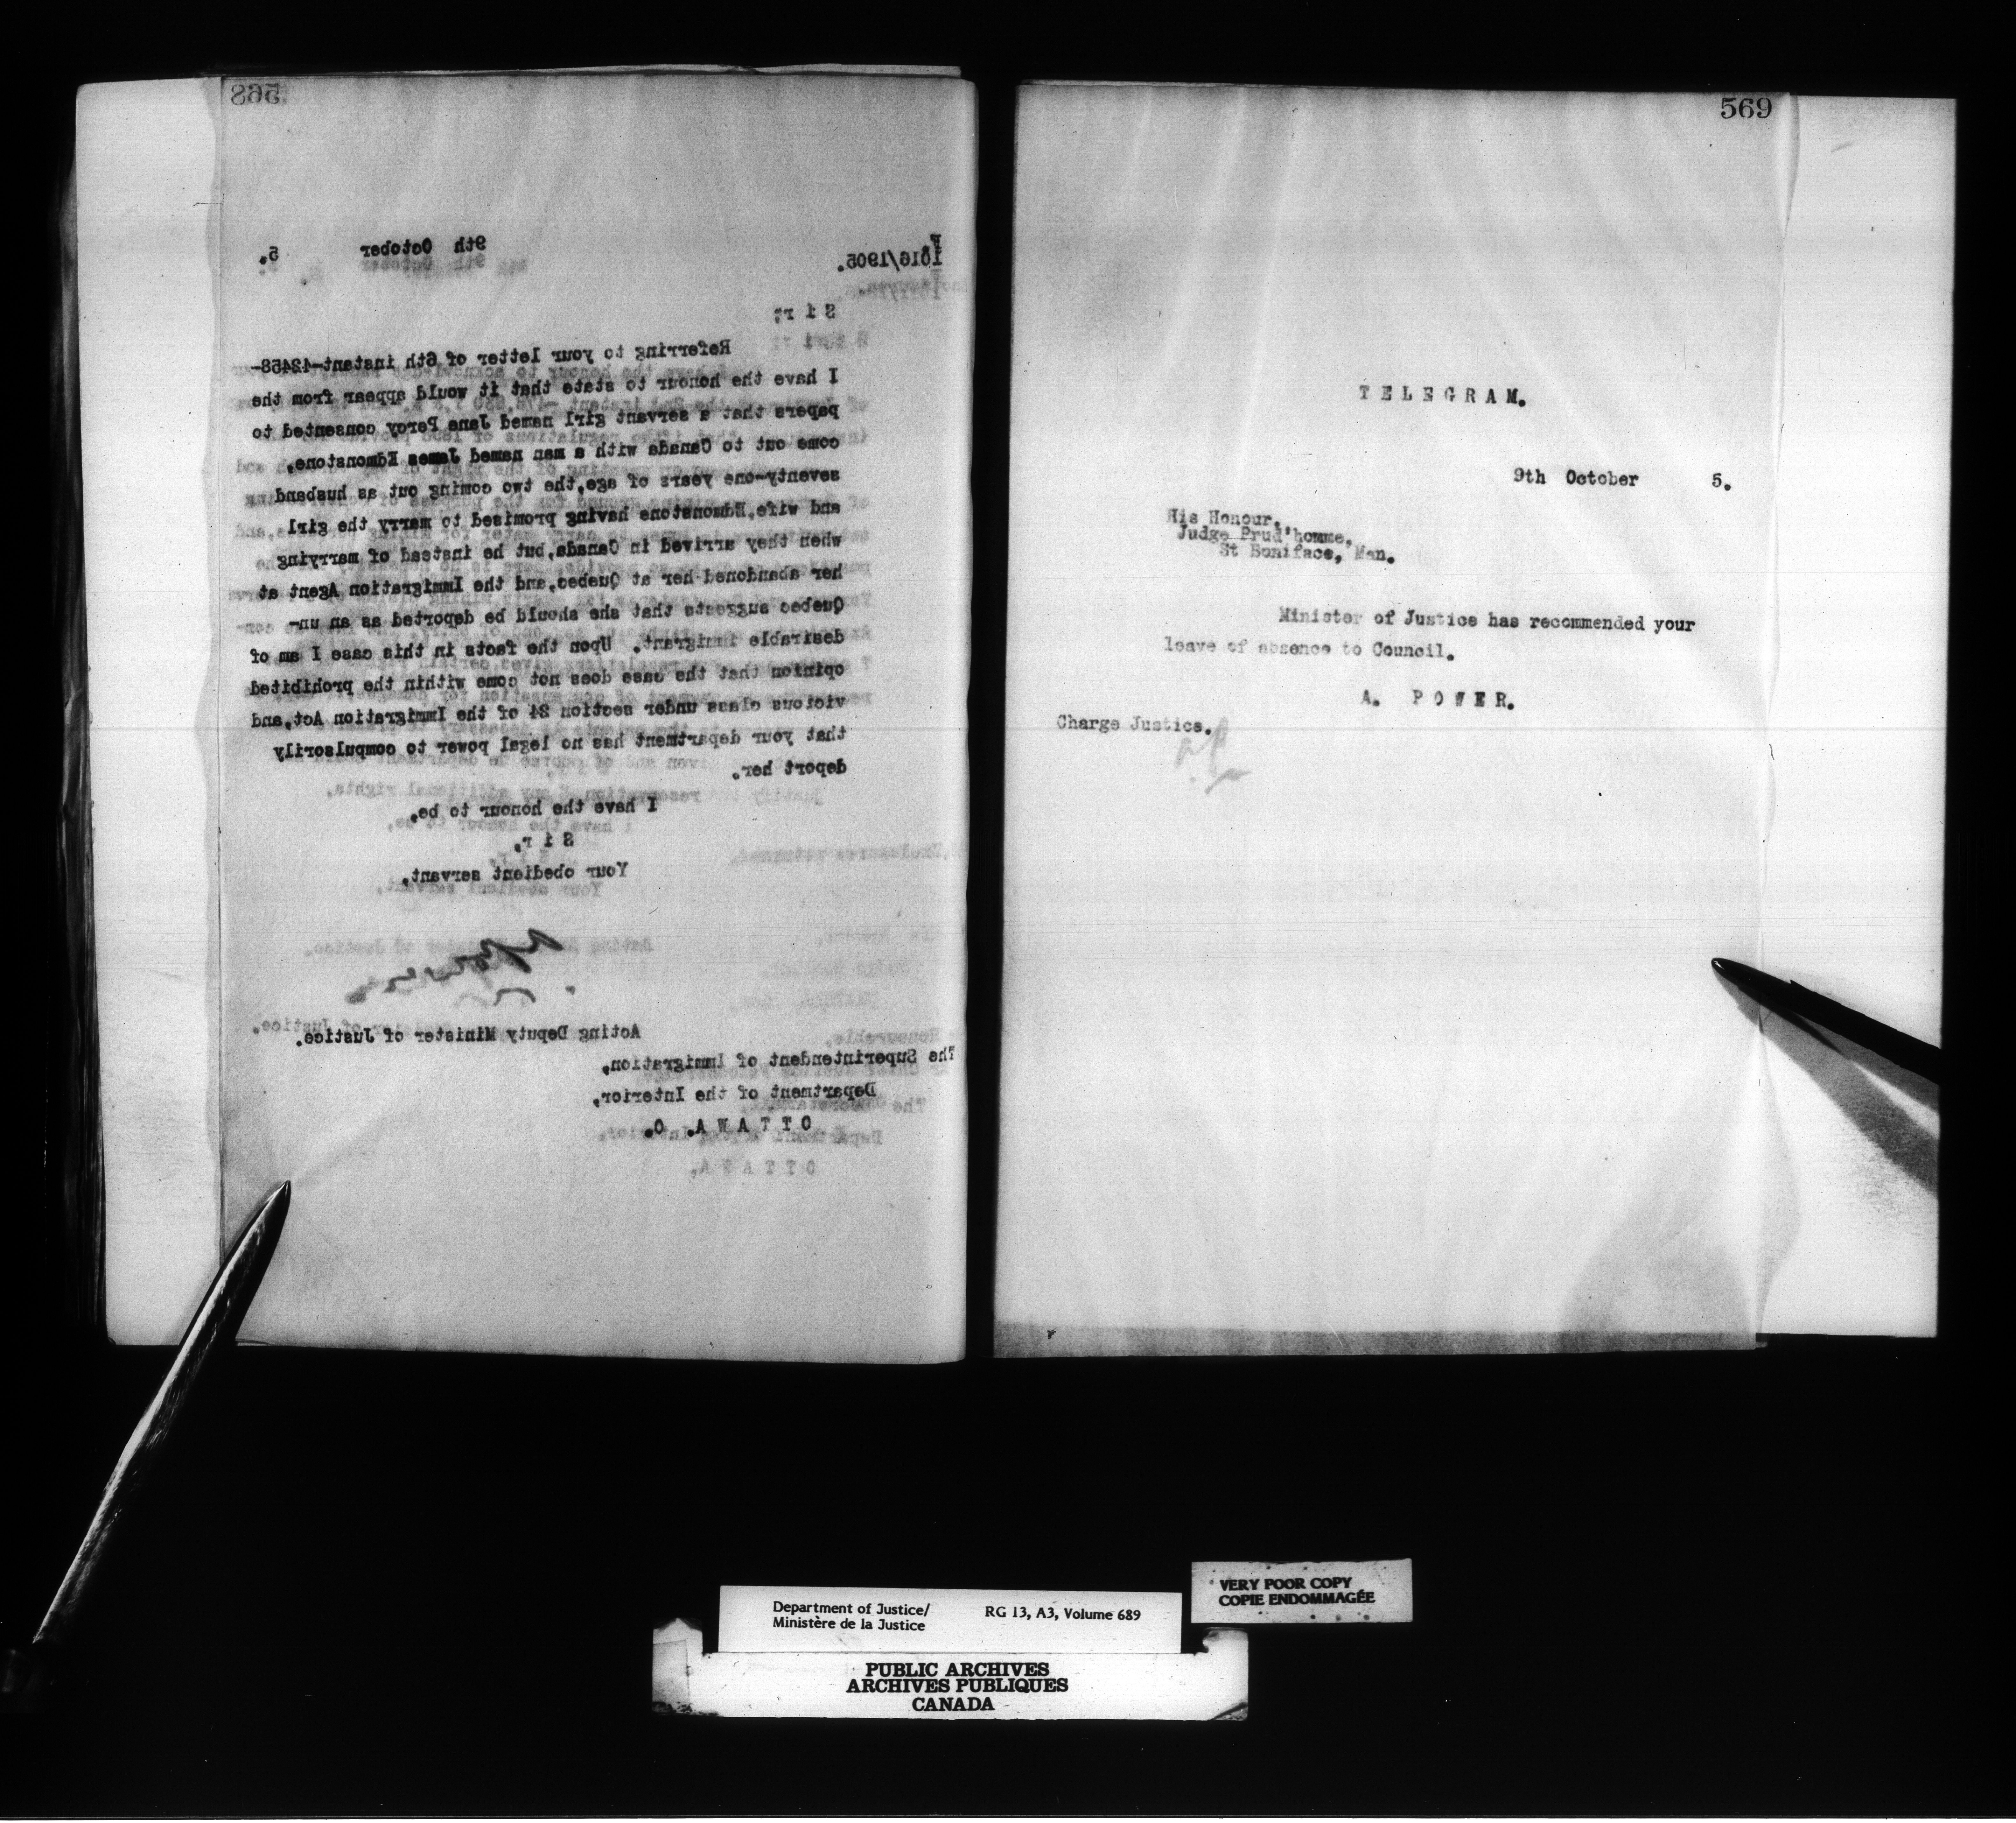 568
9th October 5.
1616/1905.
S i r;
Referring to your letter of 6th instant-42458-
I have the honour to state that it would appear from the
papers that a servant girl named Jane Percy consented to
come out to Canada with a man named James Edmonstone,
seventy-one years of age,the two coming out as husband
and wife,Edmonstone having promised to marry the girl
when they arrived in Canada,but he instead of marrying
her abandoned her at Quebec,and the Immigration Agent at
Quebec suggests that she should be deported as an un-
desirable immigrant. Upon the facts in this case I am of
opinion that the case does not come within the prohibited
vicious class under section 24 of the Immigration Act,and
that your department has no legal power to compulsorily
deport her.
I have the honour to be,
S i r,
Your obedient servant,
A Power
Acting Deputy Minister of Justice.
The Superintendent of Immigration,
Department of the Interior,
O T T A W A. O.
569
T E L E G R A M.
9th October 5.
His Honour,
Judge Prud'homme,
St Boniface, Man.
Minister of Justice has recommended your
leave of absence to Council.
A. P O W E R.
Charge Justice.
A.P.
Department of Justice/ RG 13, A3, Volume 689
Ministère de la Justice
VERY POOR COPY
COPIE ENDOMMAGÉE
PUBLIC ARCHIVES
ARCHIVES PUBLIQUES
CANADA